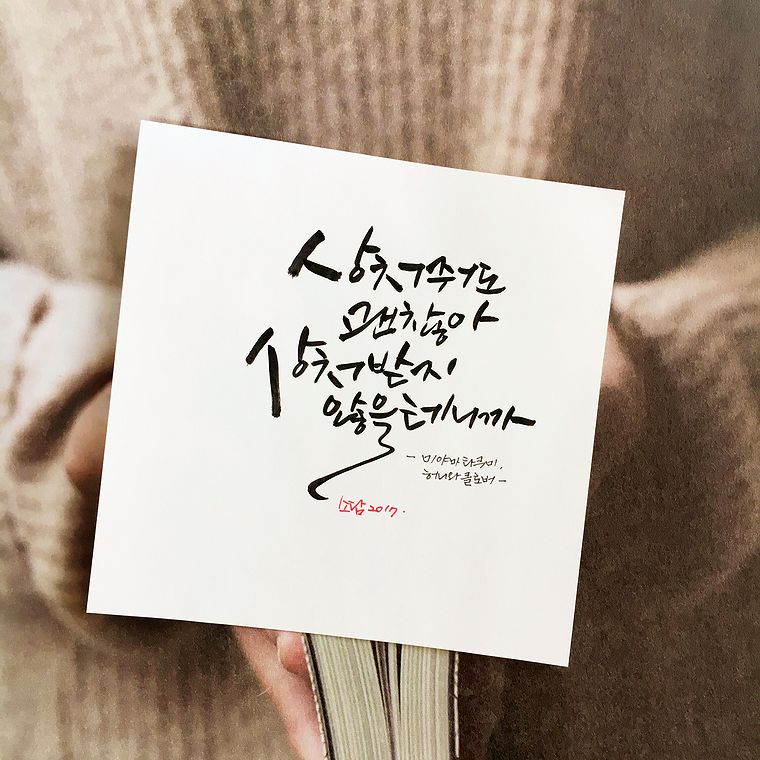 상처주어도
괜찮아
상처받지
않을테니까
- 미야마 타쿠미,
허니와 클로버 -
소담 2017.